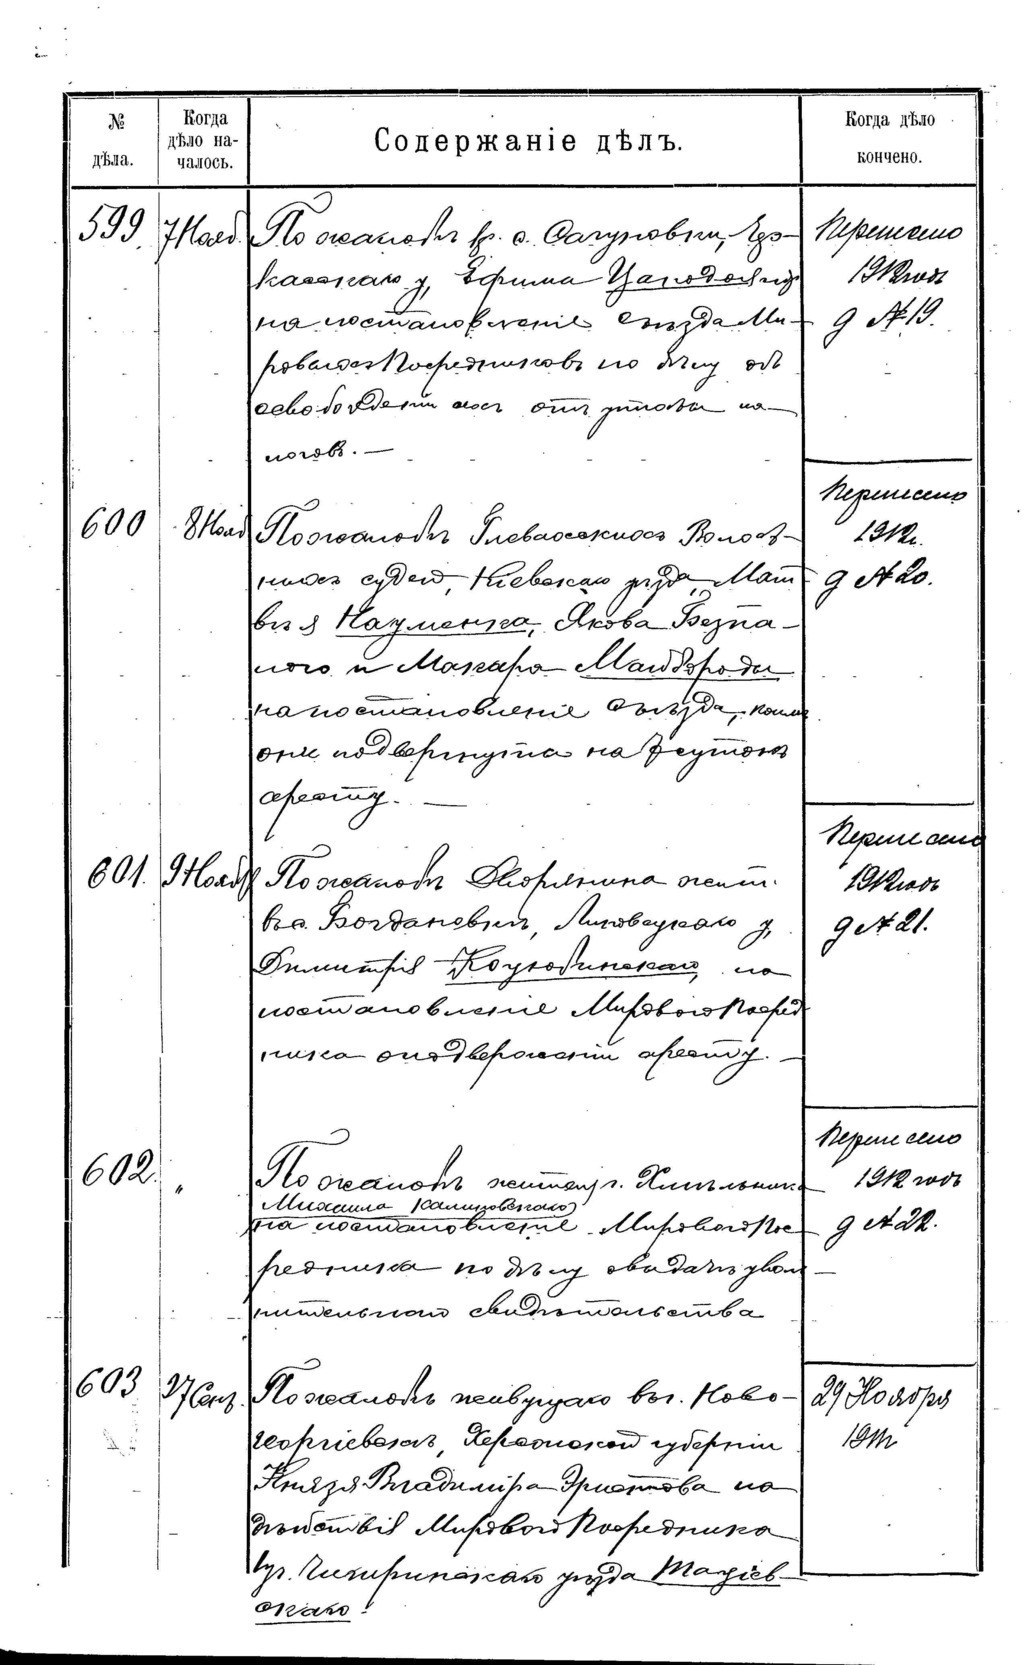 № дѣла.
Когда дѣло на-чалось.
Содержаніе дѣлъ.
Когда дѣло кончено.
599. 7 Нояб.
По жалобѣ кр. с. Сагуновки, Чер-
касскаго у, Ефима
на постановленіе Съѣзда Ми-
ровыхъ Посредниковъ по дѣлу объ
освобожденіи его отъ уплаты на-
логовъ. —
Перенесено
1912 годъ
д № 19.
600 8 Нояб
По жалобѣ Глевахскихъ Волост-
ныхъ судей, Кіевскаго уѣзда, Мат
вѣя Науменка, Якова Безпа-
лого и Макара Майбороды
на постановленіе Съѣзда, коимъ
они подвергнуты на 7 сутокъ
аресту. —
Перенесено
1912г.
д № 20.
601. 9 Нояб
По жалобѣ Дворянина жит.
въ с. Богдановкѣ, Липовецкаго у,
Димитрія Коцюбинскаго, на
постановленіе Мирового Посред
ника о подверженіи аресту. —
Перенесено
1912 годъ
д № 21.
602. "
По жалобѣ жителя г. Хмѣльника
Михаила Калиновскаго
на постановленіе Мирового По-
средника по дѣлу о выдачѣ уволь-
нительнаго свидѣтельства
Перенесено
1912 годъ
д № 22.
603 27 Сент.
По жалобѣ живущаго въ г. Ново-
георгіевскѣ, Херсонской губерніи
Князя Владиміра Эристова на
дѣйствія Мирового Посредника
Чигиринскаго уѣзда Мацѣев-
скаго.
29 Ноября
1911